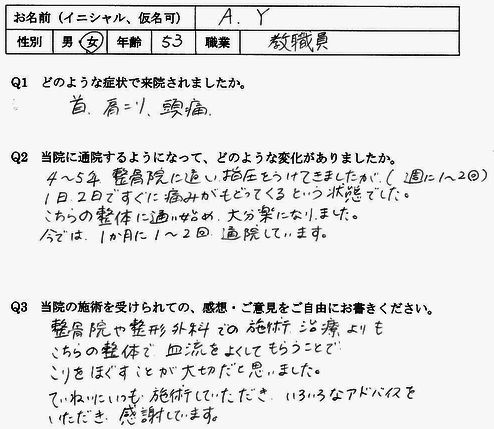 お名前（イニシャル、仮名可） A.Y
性別 男・女 年齢 53 職業 教職員
Q1 どのような症状で来院されましたか。
首、肩こり、頭痛.
Q2 当院に通院するようになって、どのような変化がありましたか。
4〜5年 整骨院に通い、指圧をうけてきましたが、(週に1〜2回)
1日、2日ですぐに痛みがもどってくるという状態でした。
こちらの整体に通い始め、大分楽になりました。
今では、1か月に1〜2回 通院しています。
Q3 当院の施術を受けられての、感想・ご意見をご自由にお書きください。
整骨院や整形外科での施術、治療よりも
こちらの整体で 血流をよくしてもらうことで
こりをほぐすことが大切だと思いました。
ていねいにいつも施術していただき、いろいろなアドバイスを
いただき、感謝しています。